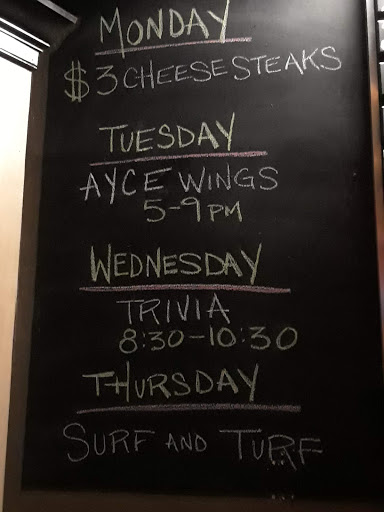 MONDAY
$3 CHEESESTEAKS
TUESDAY
AYCE WINGS
5-9PM
WEDNESDAY
TRIVIA
8:30-10:30
THURSDAY
SURF AND TURF